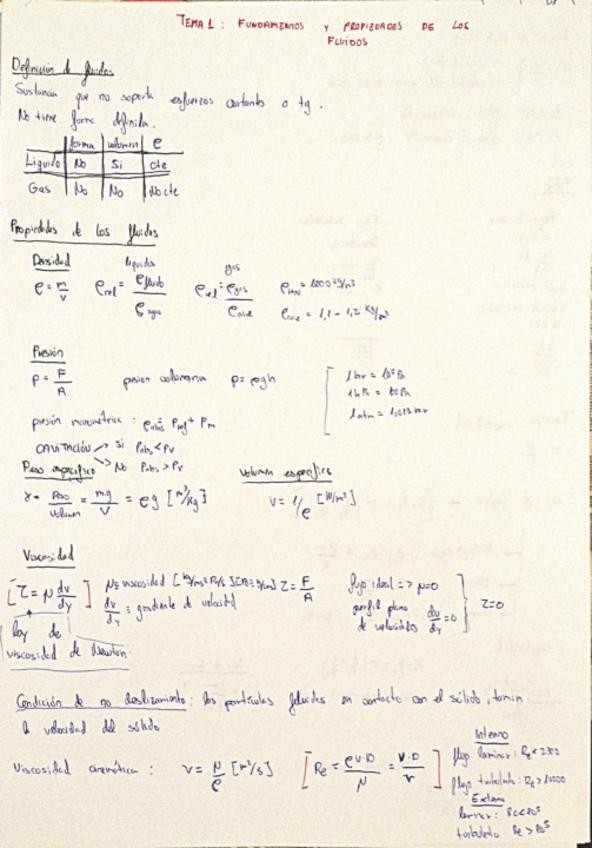 TEMA 1: FUNDAMENTOS Y PROPIEDADES DE LOS
FLUIDOS
Definición de fluidos
Sustancia que no soporta esfuerzos cortantes o tg.
No tiene forma definida.
forma volumen ρ
Liquido No Si cte
Gas No No No cte
Propiedades de los fluidos
Densidad liquidos gas
ρ = m/V ρrel = ρfluido/ρagua ρrel = ρgas/ρaire ρH2O = 1000 kg/m³
ρaire = 1,1 - 1,2 kg/m³
Presión
P = F/A presion columna P = ρgh
1 bar = 10⁵ Pa
1 atm = 1,013 bar
presión manométrica: Pabs = Pref + Pm
CAVITACIÓN → Si Pabs < Pv
→ No Pabs > Pv
Peso especifico Volumen especifico
γ = Peso/volumen = m.g/V = ρg [m³/kg] v = 1/ρ
Viscosidad
[τ = μ dv/dy] μ ≡ viscosidad τ = F/A flujo ideal => μ=0
dv/dy ≡ gradiente de velocidad perfil plano de velocidades dv/dy = 0 } τ=0
ley de
viscosidad de Newton
Condición de no deslizamiento: las partículas fluidas en contacto con el sólido, toman
la velocidad del sólido
Viscosidad cinemática: ν = μ/ρ [m²/s] [Re = ρv·D/μ = v·D/ν]
Interno
flujo laminar: Re < 2300
flujo turbulento: Re > 10000
Externo
laminar: Re < 10⁵
turbulento Re > 10⁵